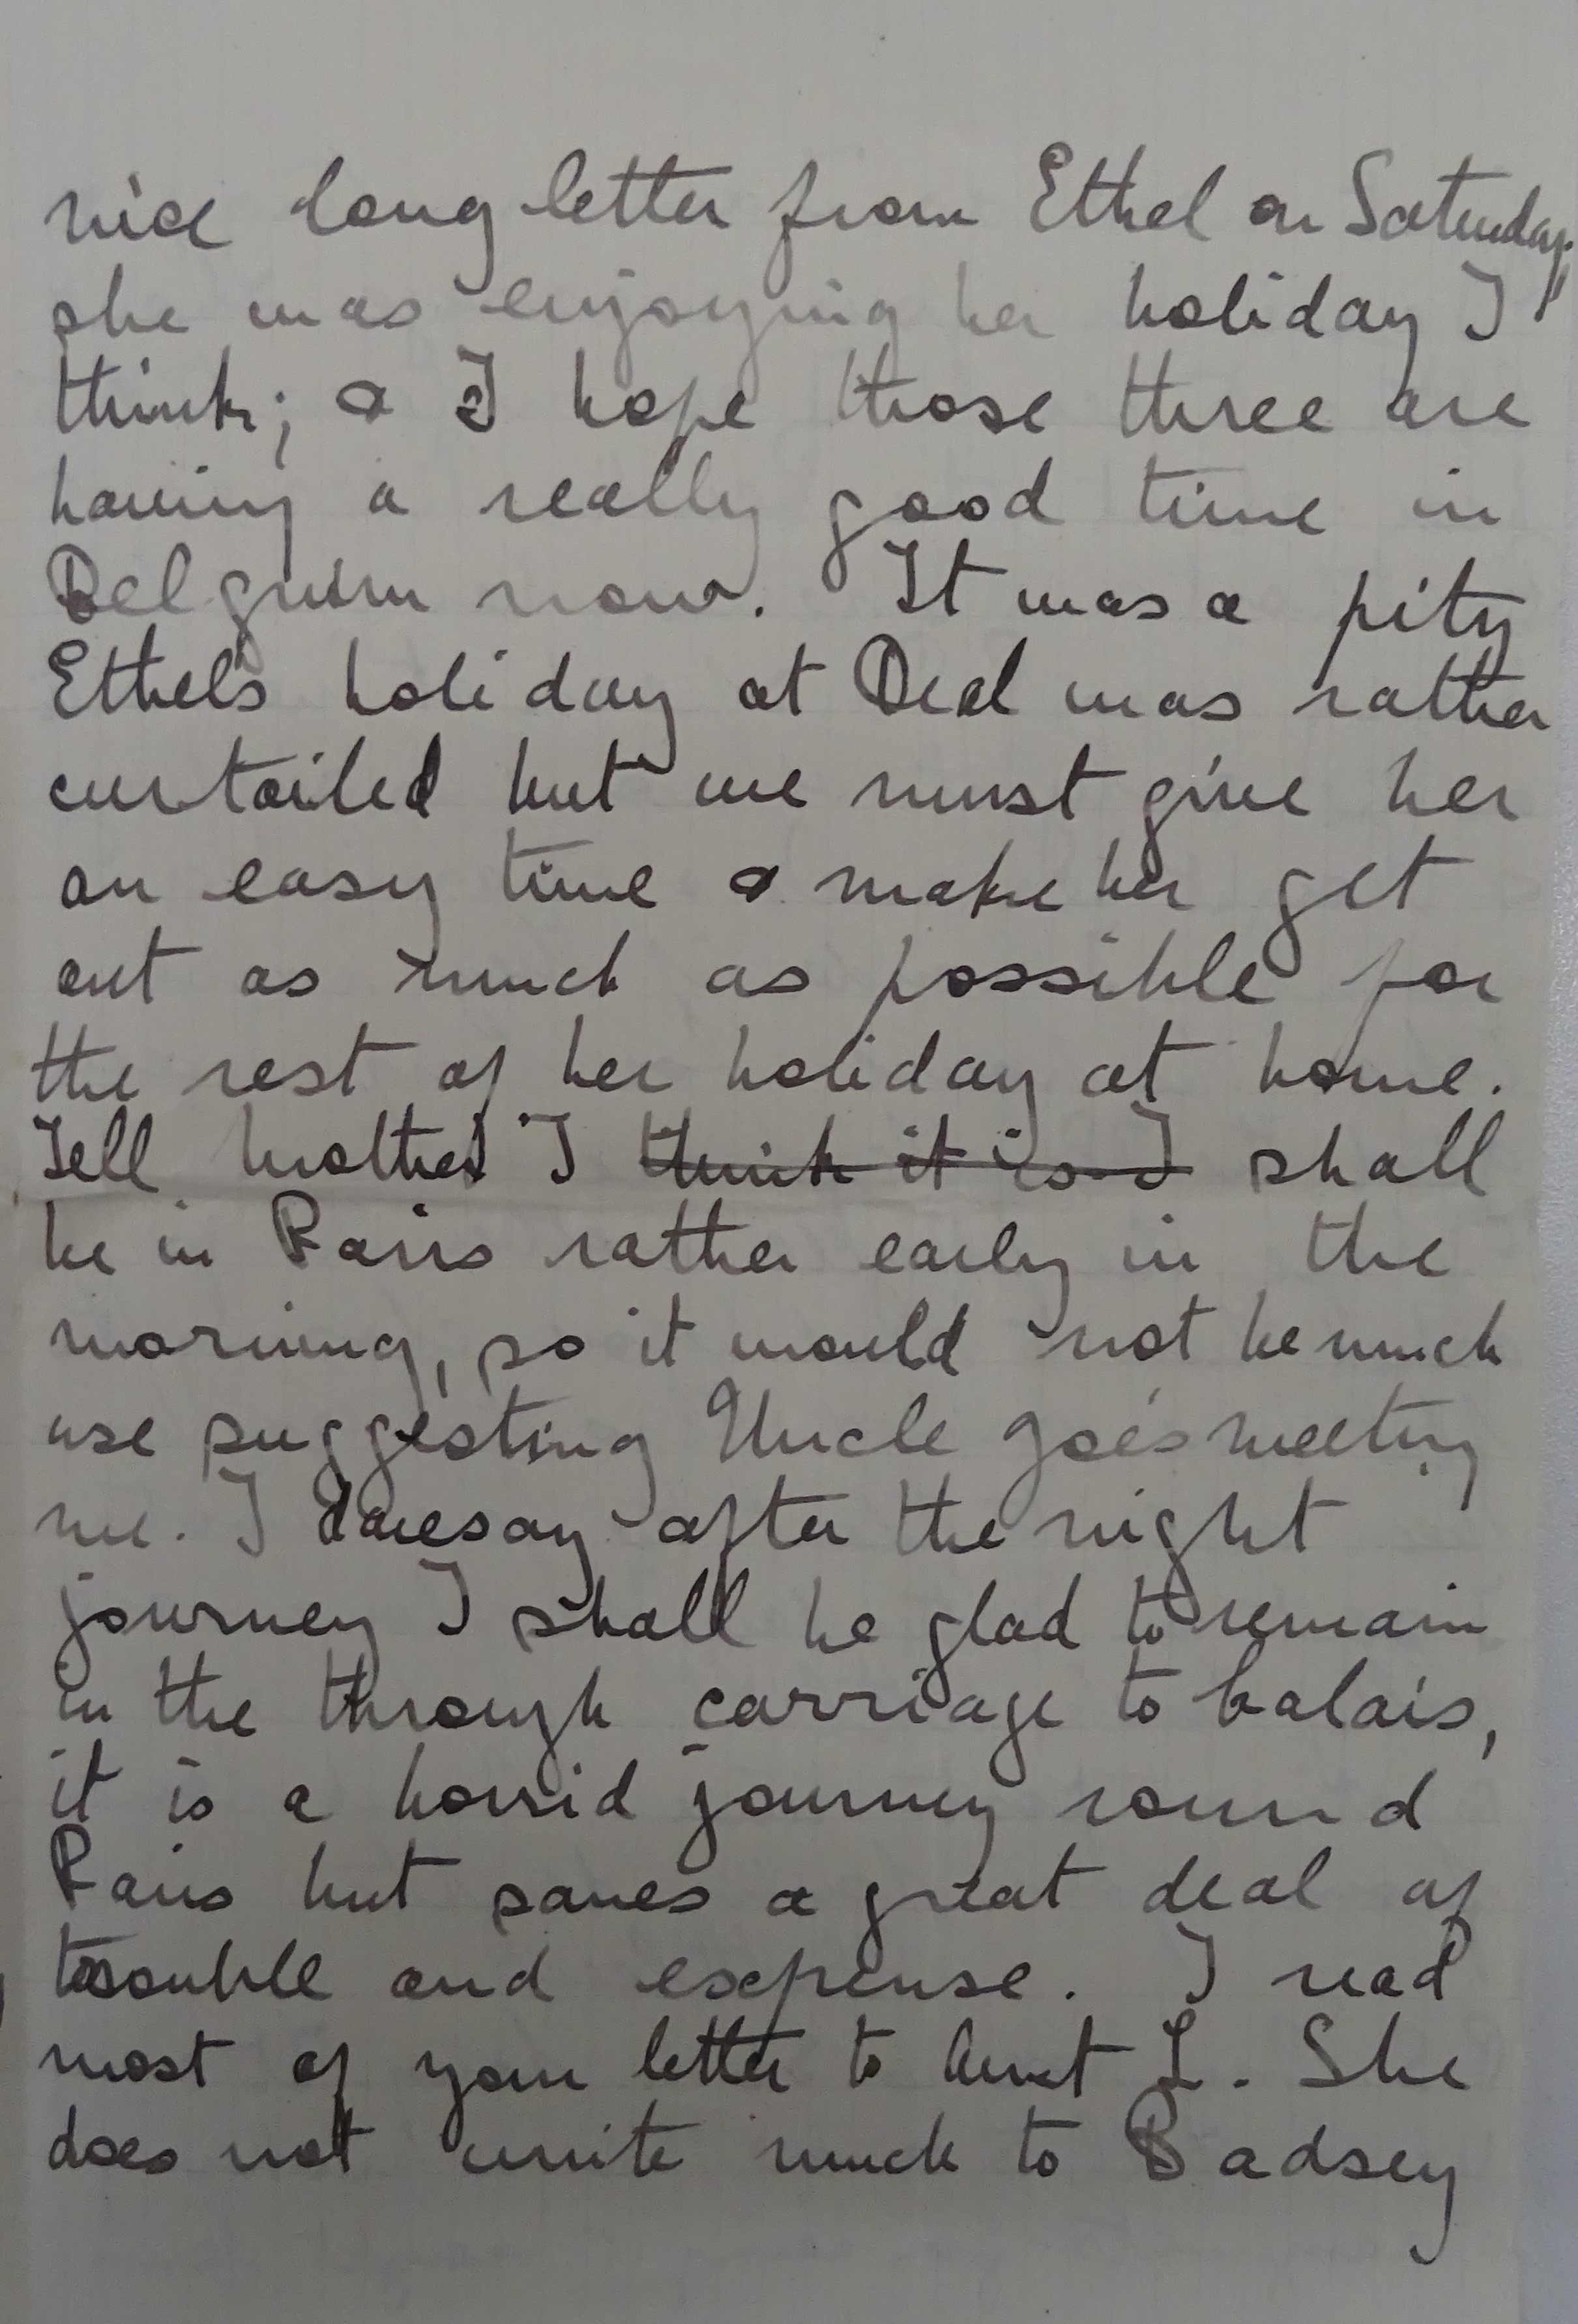 nice long letter from Ethel on Saturday,
she was enjoying her holiday I
think; & I hope those three are
having a really good time in
Belguim now. It was a pity
Ethel's holiday at Deal was rather
curtailed but we must give her
an easy time & make her get
out as much as possible for
the rest of her holiday at home.
Tell Mother I think it is I shall
be in Paris rather early in the
morning, so it would not be much
use suggesting Uncle Joe's meeting
me. I daresay after the night
journey I shall be glad to remain
in the through carriage to Calais,
it is a horrid journey round
Paris but saves a great deal of
trouble and expense. I read
most of your letter to Aunt L. She
does not write much to Badsey